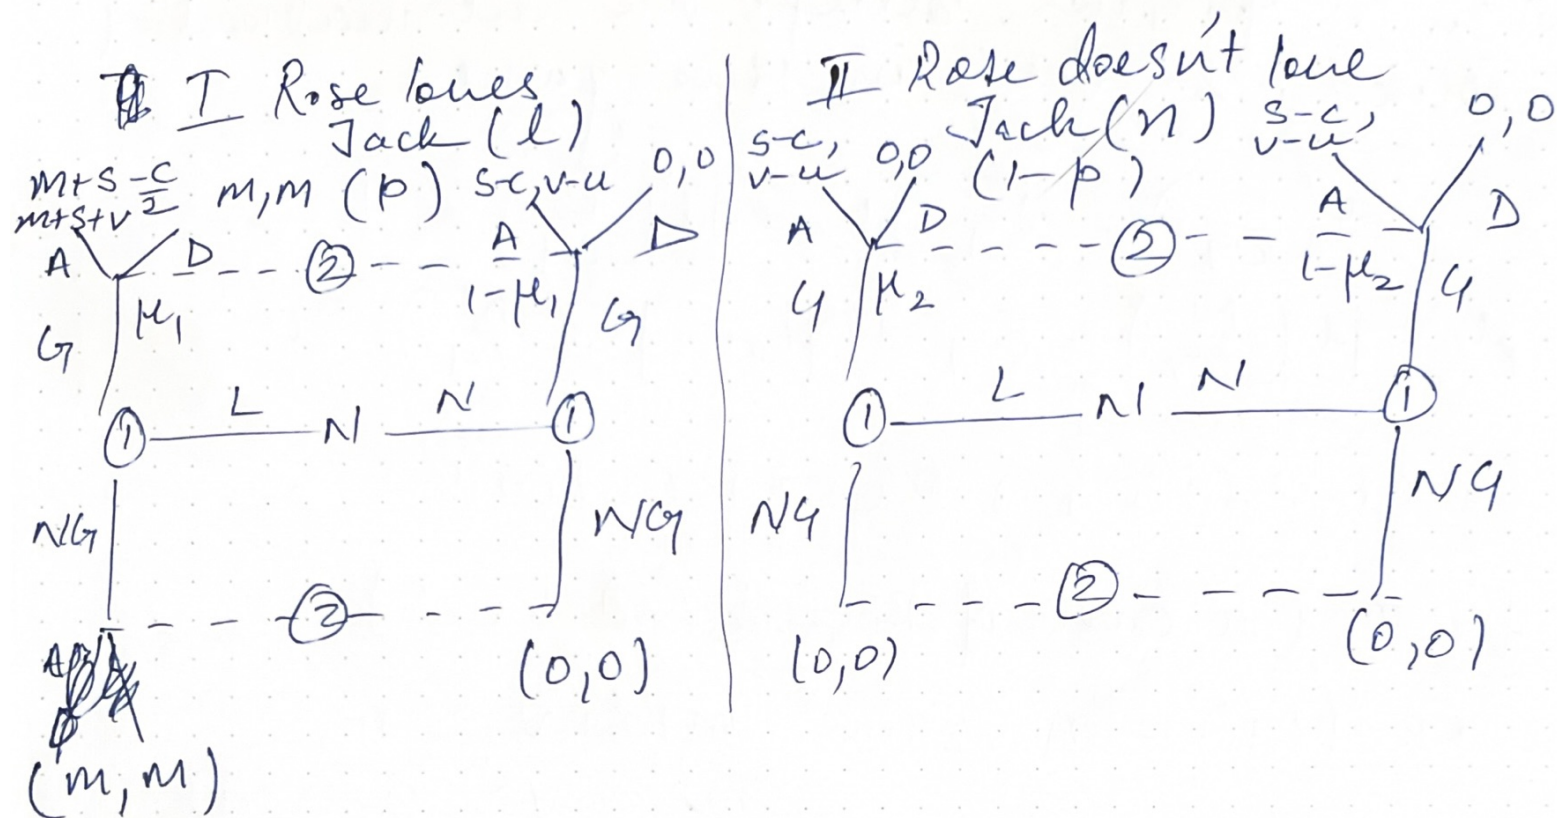 I Rose loves
Jack (l)
m+s-c/2
m+s+v
m, m (p) s-c, v-u 0, 0
A D ② A D
μ₁ 1-μ₁
G G
① L N N ①
NG NG
②
(0,0)
(m, m)
II Rose doesn't love
Jack (n)
(1-p)
s-c,
v-u
0,0
s-c,
v-u
0, 0
A D ② A D
G μ₂ 1-μ₂ G
① L N N ①
NG NG
②
(0,0) (0,0)